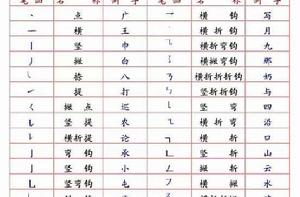 笔画 名称 例字 笔画 名称 例字
、 点 广 乛 横钩 写
一 横 王 横折钩 月
丨 竖 巾 ㇈ 横折弯钩 九
丿 撇 白 ㇌ 横撇弯钩 那
㇏ 捺 八 ㇡ 横折折折钩 奶
㇀ 提 打 ㇉ 竖折折钩 与
㇛ 撇点 巡 ㇄ 竖弯 四
㇙ 竖提 农 ㇍ 横折弯 沿
㇊ 横折提 论 ㇕ 横折 口
㇁ 弯钩 承 ㇗ 竖折 山
亅 竖钩 小 ㇜ 撇折 云
㇟ 竖弯钩 屯 ㇇ 横撇 水